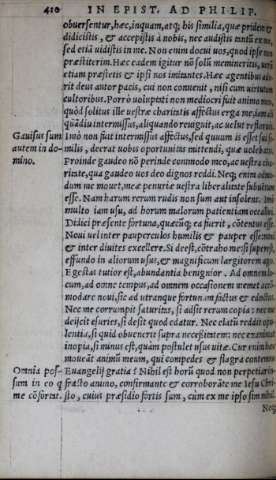 410 IN EPIST. AD PHILIP.
obuersentur, hæc, inquam, atq; his similia, quæ pridem &
didicistis, & accepistis à nobis, nec audistis tantũ ex me,
sed etiã uidistis in me. Non enim docui uos, quod ipse non
præstiterim. Hæc eadem igitur nõ solũ memineritis, uerũ
etiam præstetis & ipsi nos imitantes. Hæc agentibus ad-
rit deus autor pacis, cui non conuenit, nisi cum uirtutum
cultoribus. Porrò uoluptati non mediocri fuit animo meo,
quòd solitus ille uestræ charitatis affectus erga me, iam
quãdiu intermissus, aliquando reuiguit, ac uelut refloruit.
Gauisus sum Imò non fuit intermissus affectus, sed quum is esset sui si-
autem in do- milis, deerat uobis oportunitas mittendi, quæ uolebatis.
mino. Proinde gaudeo nõ perinde commodo meo, ac uestra cha-
ritate, qua gaudeo uos deo dignos reddi. Neq; enim
dum me mouet, meæ penuriæ uestra liberalitate subuentum
esse. Nam harum rerum rudis non sum aut insolens.
multo iam usu, ad horum malorum patientiam occallui.
Didici præsente fortuna, quæcũq; ea fuerit, cõtentus esse.
Noui uel inter pauperculos humilis & pauper esse
& inter diuites excellere. Si deest, cõtraho me: si superest,
effundo in aliorum usus, & magnificum largitorem ago.
Egestas tutior est, abundantia benignior. Ad omnem lo-
cum, ad omne tempus, ad omnem occasionem memet accõ-
modare noui, sic ad utranque fortunam factus & edoctus.
Nec me corrumpit saturitas, si adsit rerum copia: nec me
deijcit esuries, si desit quod edatur. Nec elatũ reddit opu-
lentia, si quid obuenerit supra necessitatem: nec exanimat
inopia, si minus est, quàm postulet usus uitæ. Cur enim hæc
moueãt animũ meum, qui compedes & flagra contemno
Omnia pos- Euangelij gratia? Nihil est horũ quod non perpetiar in-
sum in eo q fracto animo, confirmante & corroborãte me Iesu Chri-
me cõfortat. sto, cuius præsidio fortis sum, cum ex me ipso sim nihil.
Neq;